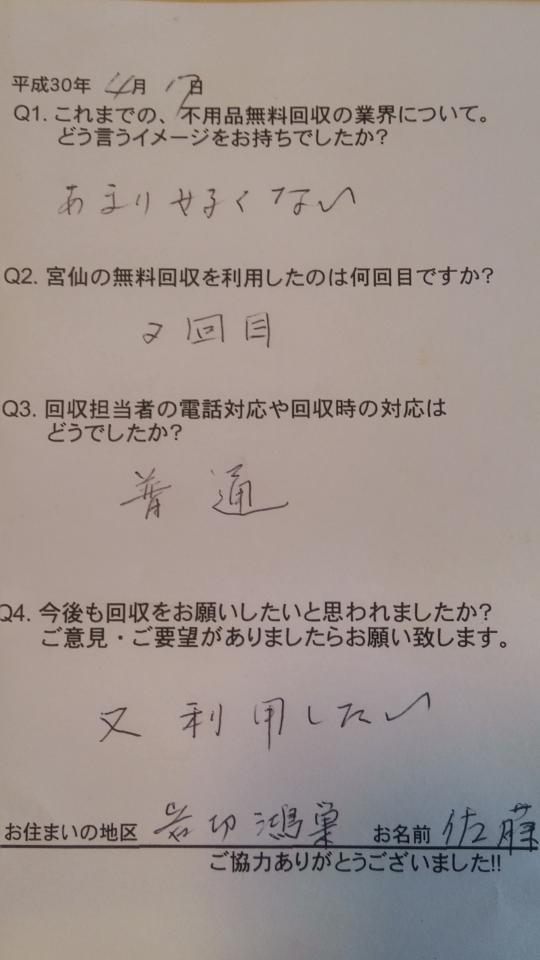 平成30年 4月 17日
Q1. これまでの、不用品無料回収の業界について。
どう言うイメージをお持ちでしたか?
あまり好くない
Q2. 宮仙の無料回収を利用したのは何回目ですか?
2回目
Q3. 回収担当者の電話対応や回収時の対応は
どうでしたか?
普通
Q4. 今後も回収をお願いしたいと思われましたか?
ご意見・ご要望がありましたらお願い致します。
又利用したい
お住まいの地区 岩切鴻巣 お名前 佐藤
ご協力ありがとうございました!!